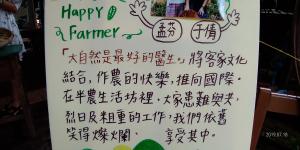 Happy
Farmer
孟芬
于倩
「大自然是最好的醫生」將客家文化
結合，作農的快樂，推向國際。
在半農生活坊裡，大家患難與共，
烈日及粗重的工作，我們依舊
笑得燦爛，享受其中。
2019.07.18